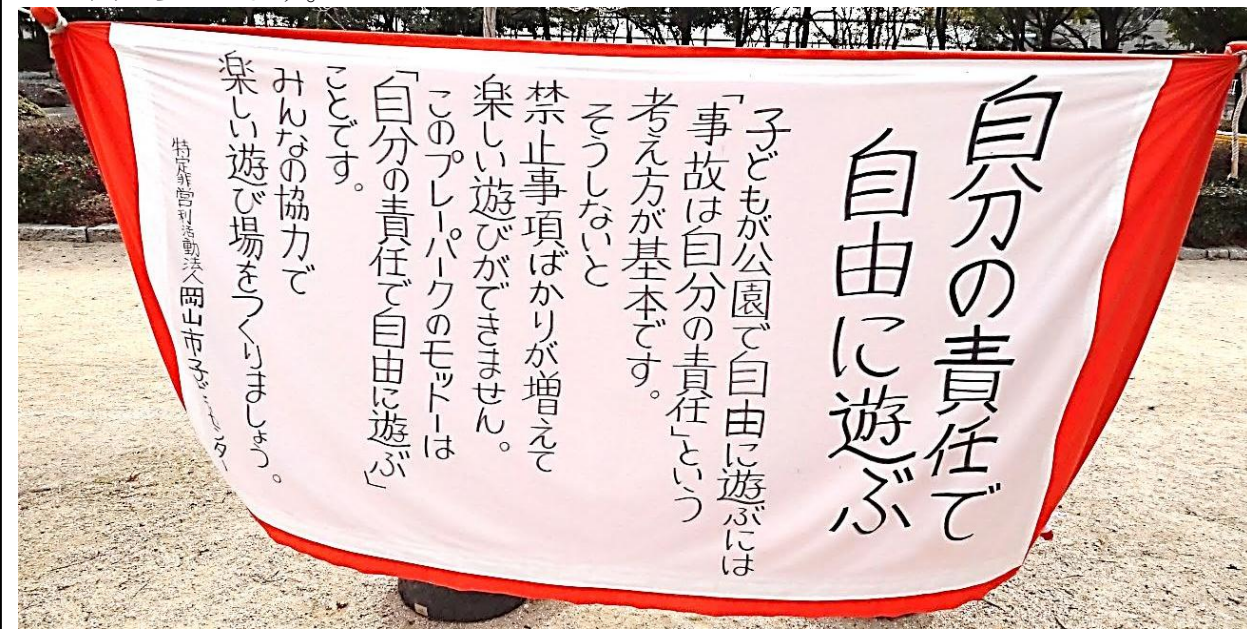 自分の責任で
自由に遊ぶ
子どもが公園で自由に遊ぶには
「事故は自分の責任」という
考え方が基本です。
そうしないと
禁止事項ばかりが増えて
楽しい遊びができません。
このプレーパークのモットーは
「自分の責任で自由に遊ぶ」
ことです。
みんなの協力で
楽しい遊び場をつくりましょう。
特定非営利活動法人岡山市子どもセンター